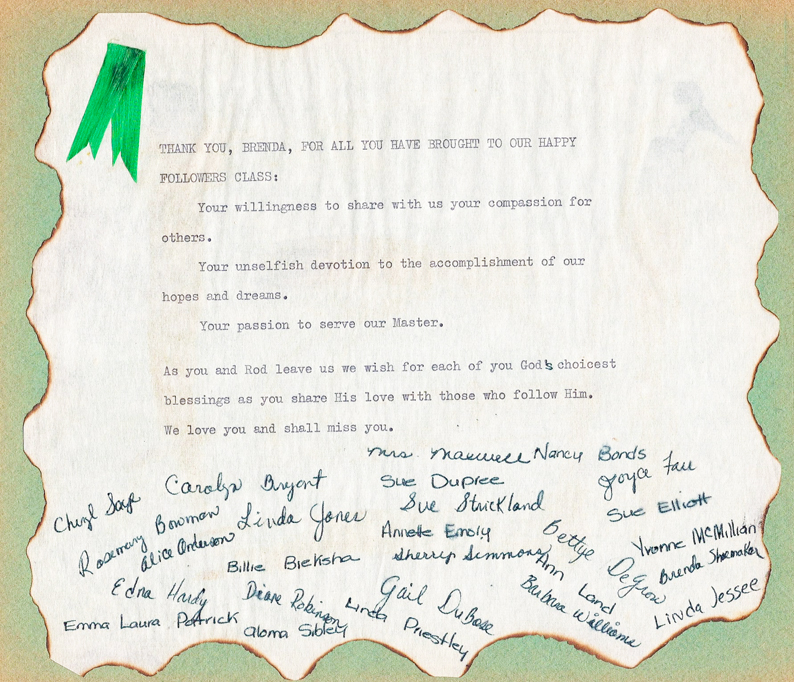 THANK YOU, BRENDA, FOR ALL YOU HAVE BROUGHT TO OUR HAPPY
FOLLOWERS CLASS:
Your willingness to share with us your compassion for
others.
Your unselfish devotion to the accomplishment of our
hopes and dreams.
Your passion to serve our Master.
As you and Rod leave us we wish for each of you God's choicest
blessings as you share His love with those who follow Him.
We love you and shall miss you.
Mrs. Maxwell
Nancy Bonds
Carolyn Bryant
Sue Dupree
Joyce
Cheryl
Sue Strickland
Sue Elliott
Rosemary Bowman
Linda Jones
Annette
Bettye
Yvonne McMillian
Alice Anderson
Billie Bieksha
Sherry Simmons
Ann Land
Brenda Shoemaker
Edna Hardy
Diane Robinson
Gail DuBose
Barbara Williams
Linda Jessee
Emma Laura Patrick
Aloma Sibley
Linda Priestley